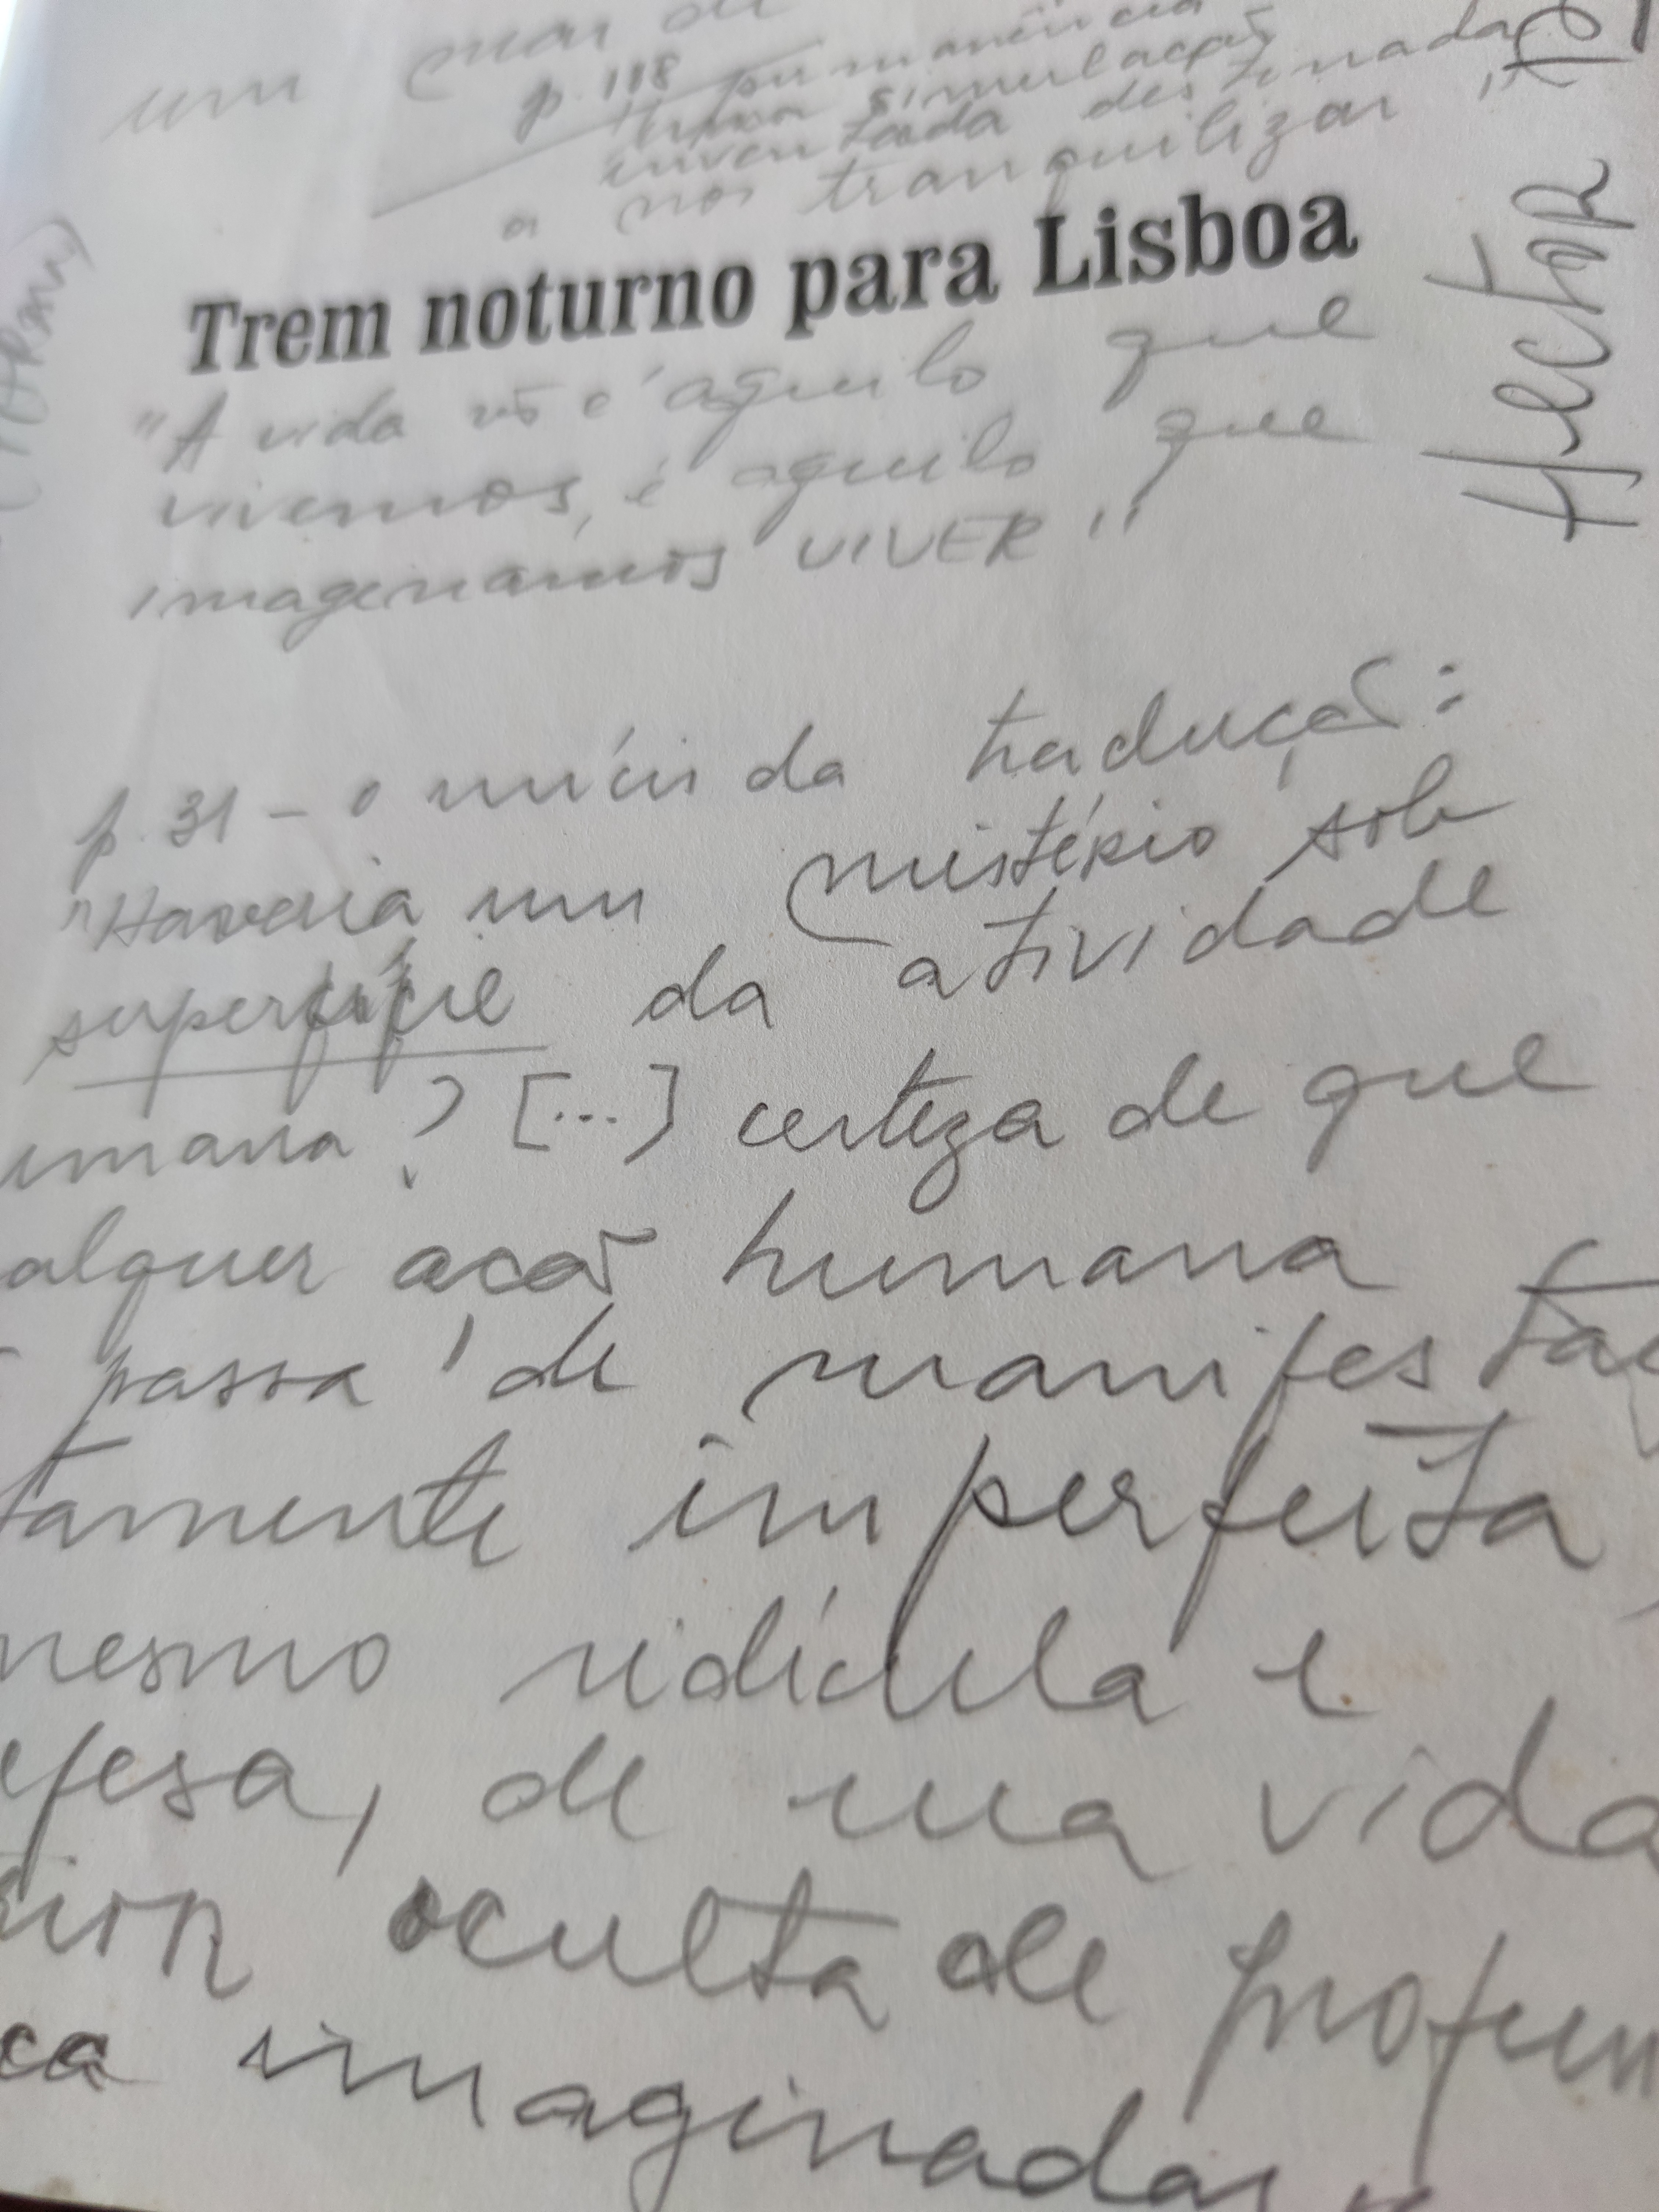 um mar de
p. 118
permanência
simulação
inventada destinada
a nos tranquilizar"
Hector
Trem noturno para Lisboa
"A vida não é aquilo que
vivemos, é aquilo que
imaginamos VIVER"
p. 31 - o início da tradução:
"Haveria um mistério sob
superfície da atividade
umana? [...] certeza de que
alquer acaõ humana
passa de manifestaç
tamente imperfeita,
mesmo ridícula e
efesa, de uma vida
rior oculta de profun
ca imaginada